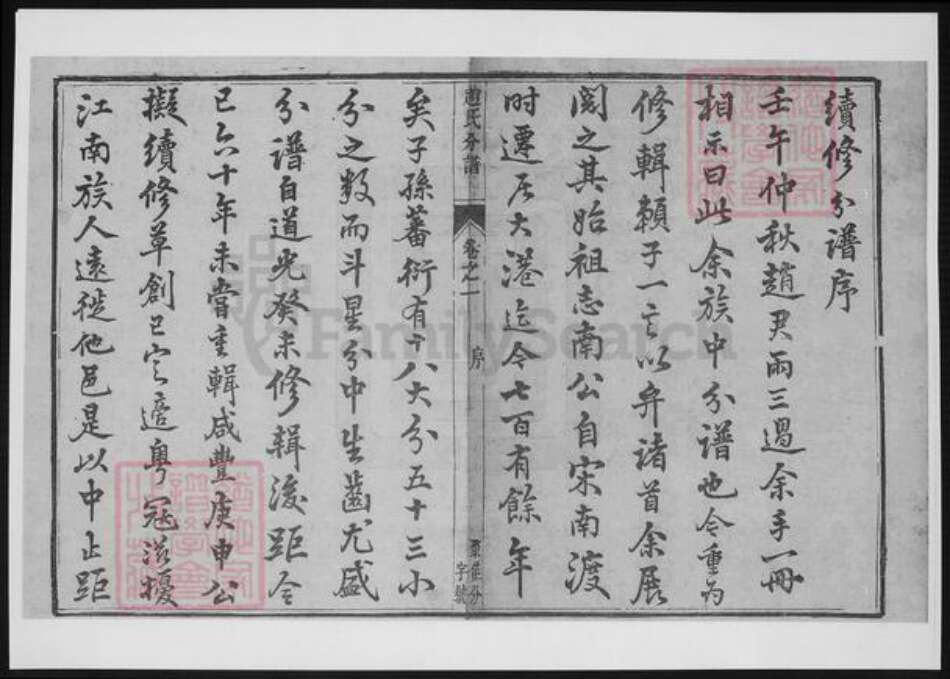 續修分譜序
壬午仲秋趙君雨三過余手一冊
相示曰此余族中分譜也今重為
修輯賴子一言以弁諸首余展
閱之其始祖志南公自宋南渡
时遷居大港迄今七百有餘年
趙氏分譜 卷之一 序
分 字號
矣子孫蕃衍有十八大分五十三小
分之数而斗星分中生齒尤盛
分譜自道光癸未修輯後距今
已六十年未嘗重輯咸豐庚申公
擬續修草創已定適粵冦滋擾
江南族人遠徙他邑是以中止距
FamilySearch